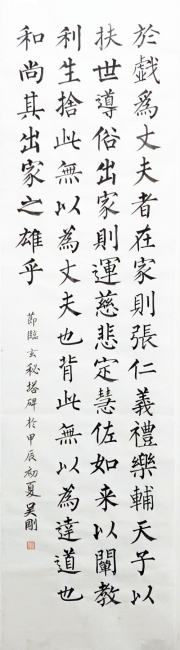 於戱為丈夫者在家則張仁義禮樂輔天子以
扶世導俗出家則運慈悲定慧佐如来以闡教
利生捨此無以為丈夫也背此無以為達道也
和尚其出家之雄乎
節臨玄秘塔碑於甲辰初夏吴剛